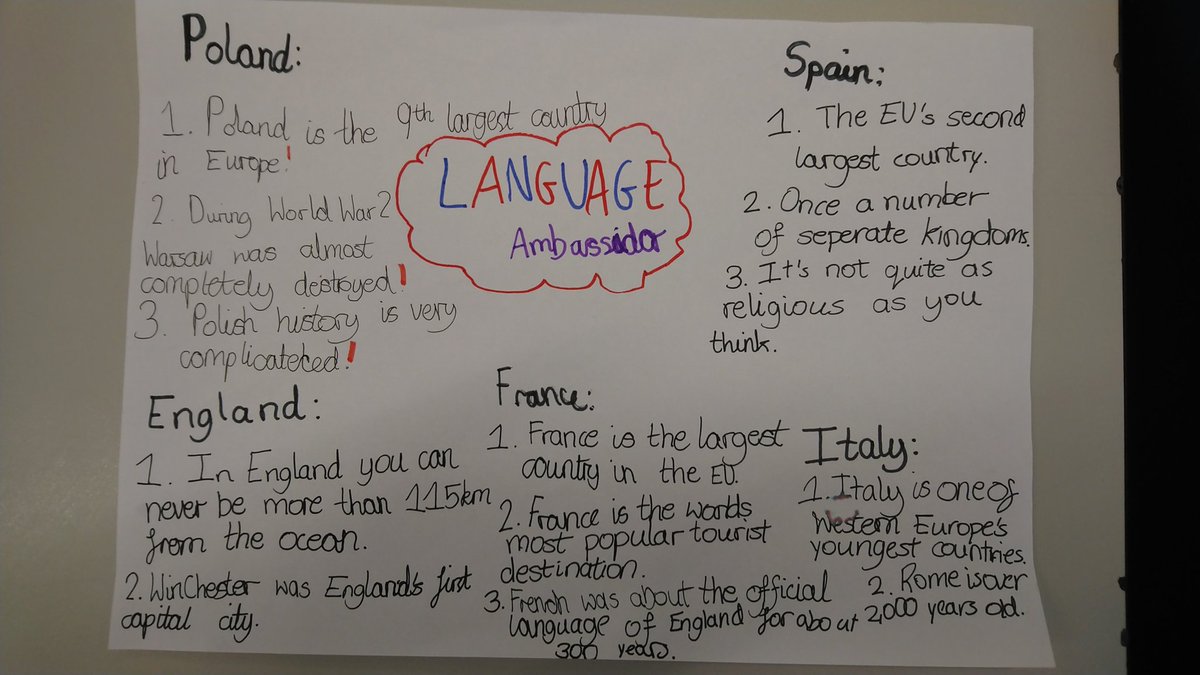 Poland:
1. Poland is the 9th largest country
in Europe!
2. During World War 2
Warsaw was almost
completely destroyed!
3. Polish history is very
complicateted!
LANGUAGE
Ambassidor
Spain:
1. The EU's second
largest country.
2. Once a number
of seperate kingdoms.
3. It's not quite as
religious as you
think.
England:
1. In England you can
never be more than 115km
from the ocean.
2. WinChester was England's first
capital city.
France:
1. France is the largest
country in the EU.
2. France is the worlds
most popular tourist
destination.
3. French was about the official
language of England for about
300 years.
Italy:
1. Italy is one of
Western Europe's
youngest countries.
2. Rome is over
2,000 years old.